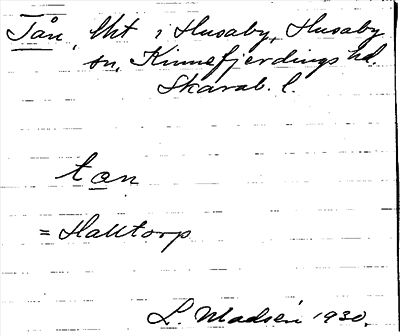 Tån, lht i Husaby, Husaby
sn, Kinnefjerdings hd.
Skarab. l.
tan
= Halltorp
L. Madsén 1930.